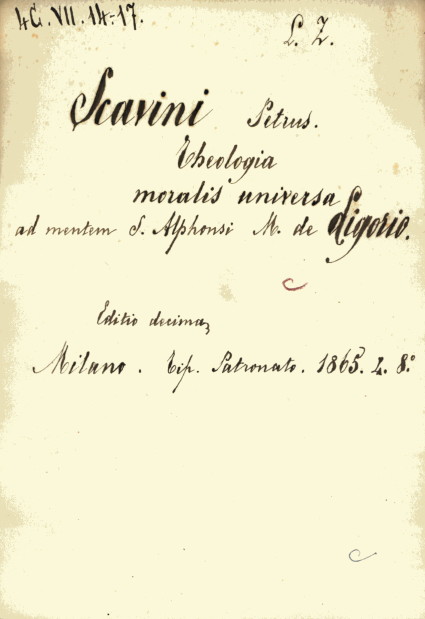 4C. VII. 14-17.
L. Z.
Scavini Petrus.
Theologia
moralis universa
ad mentem S. Alphonsi M. de Ligorio.
Editio decima,
Milano. Tip. Patronato. 1865. 4. 8.°